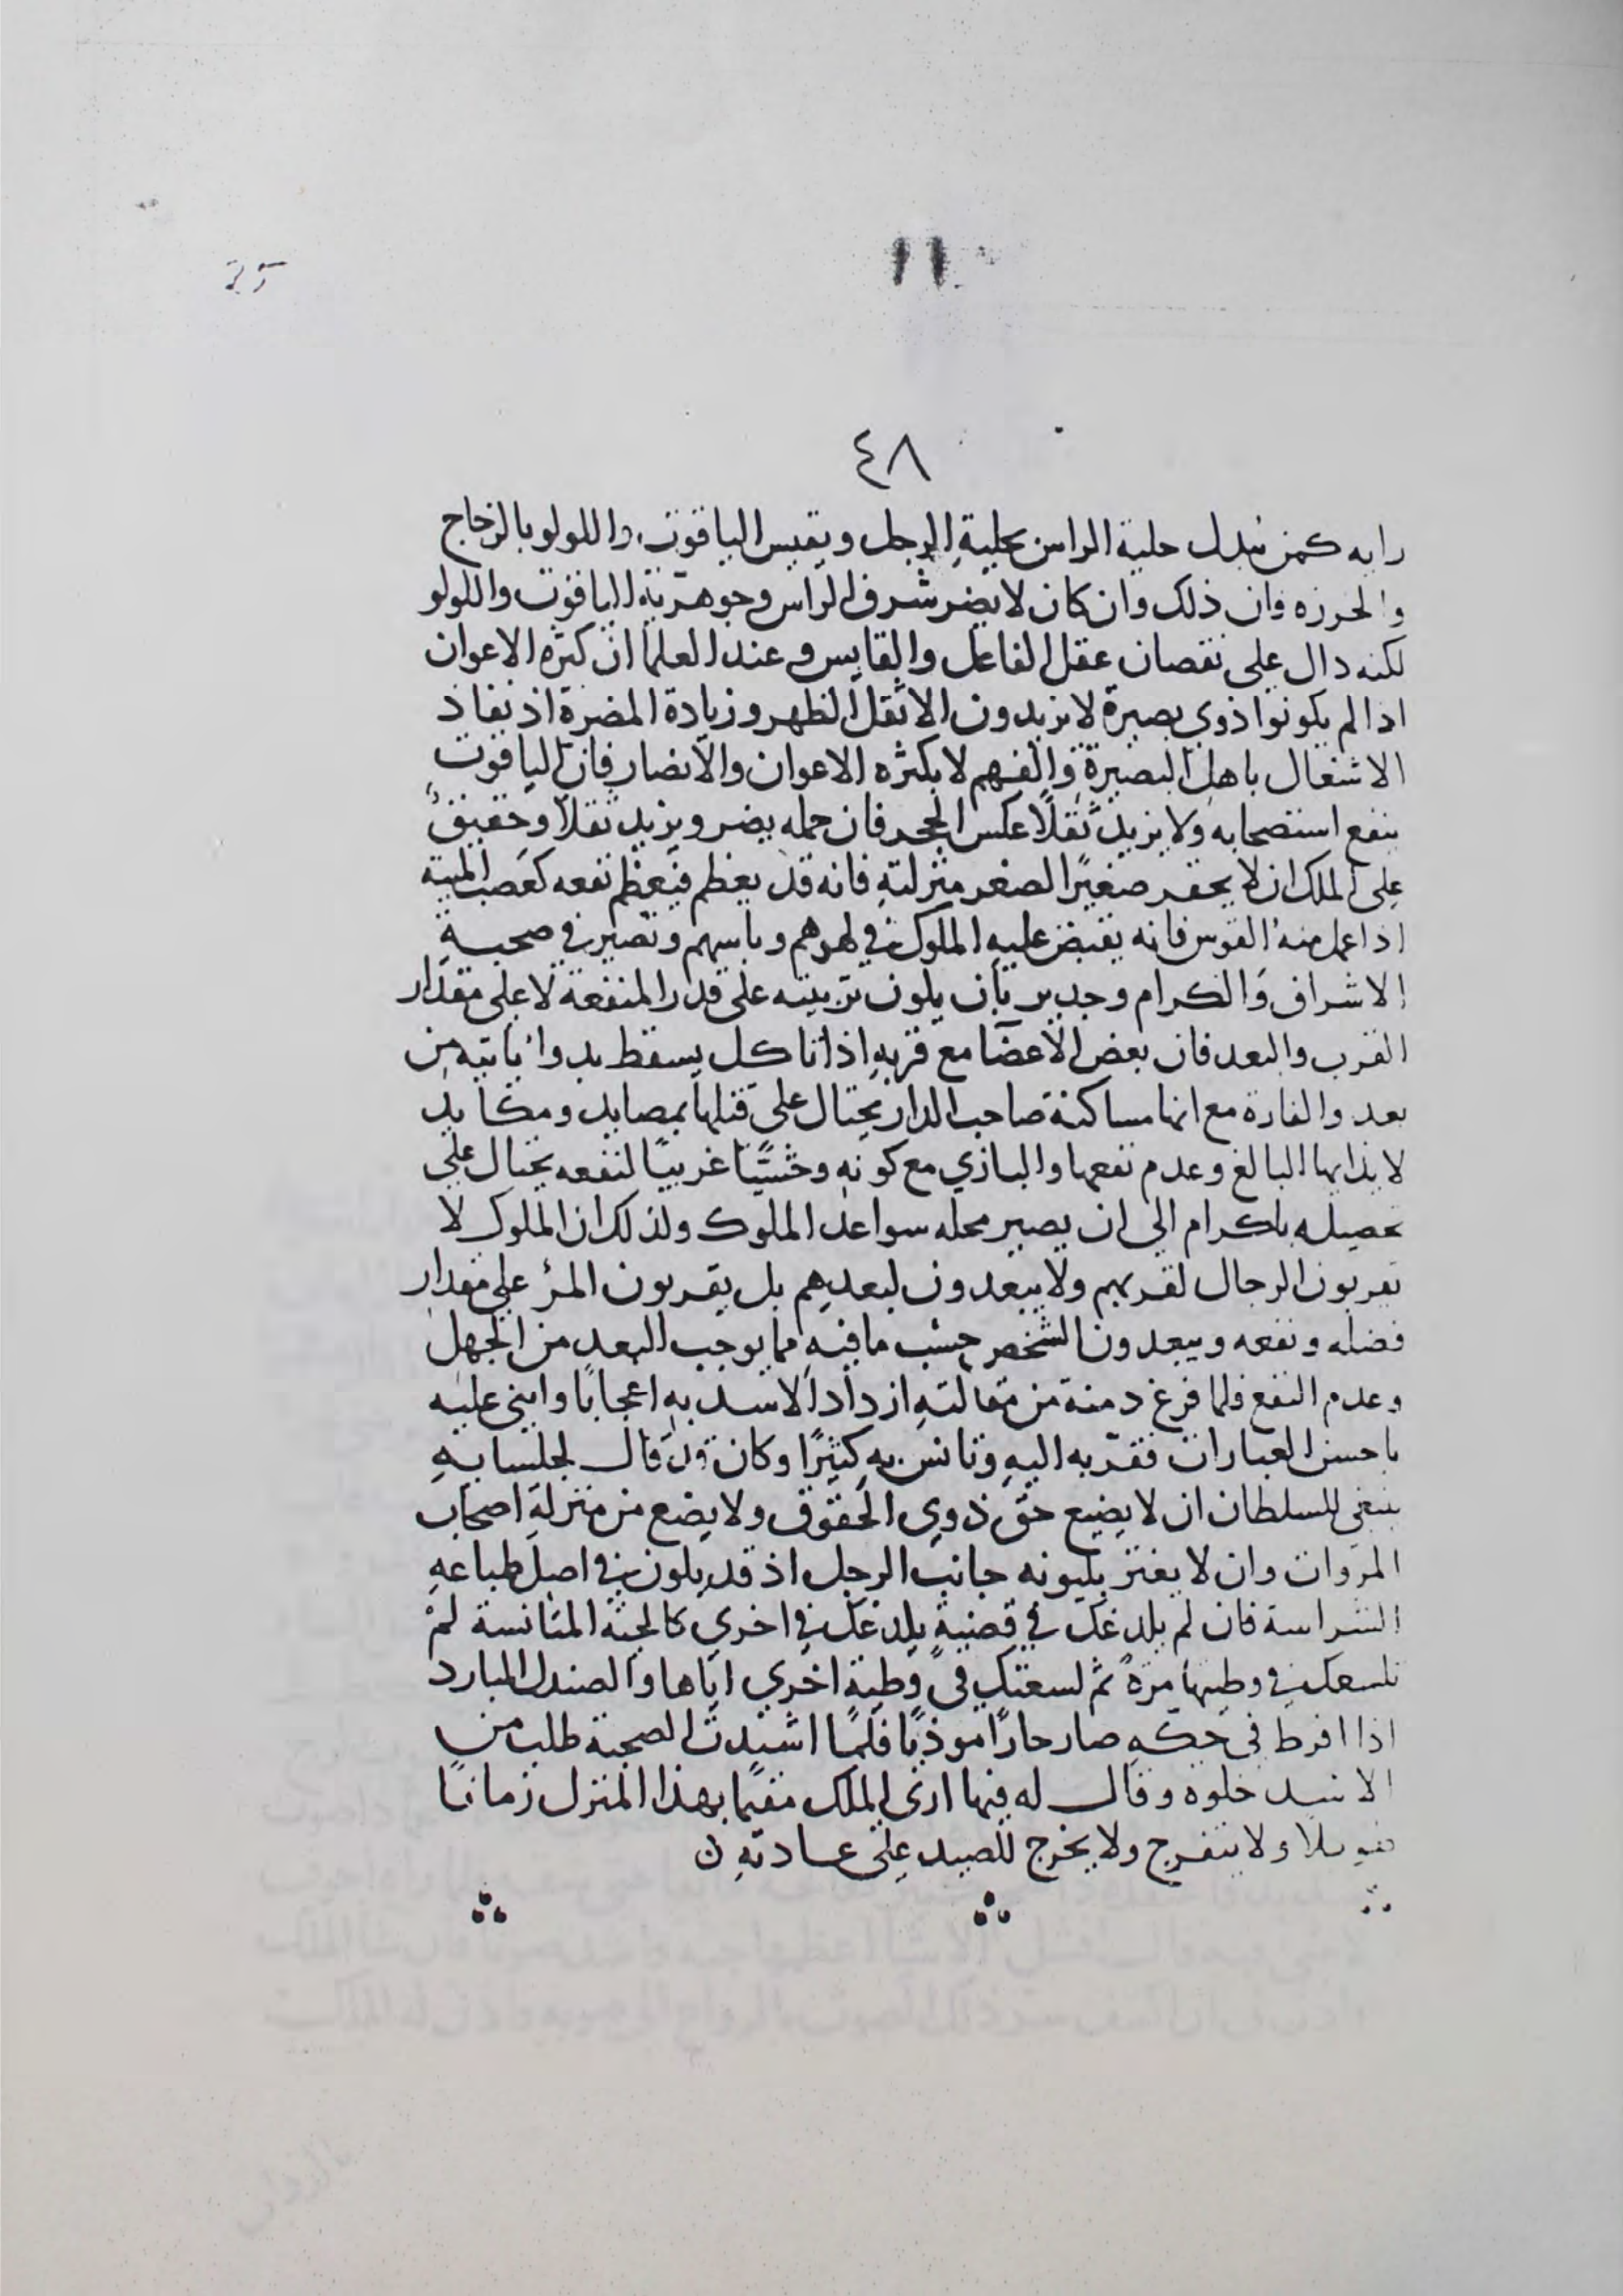 25
١١
٤٨
رايه كمن يبدل حلية الراس بحلية الرجل ويقيس الياقوت واللولو بالزجاج
والخرزه وان ذلك وان كان لا يضر شرف الراس وجوهرية الياقوت واللولو
لكنه دال على نقصان عقل الفاعل والقايس وعند العلما ان كثرة الاعوان
اذا لم يكونوا ذوي بصيرة لا يزيدون الا ثقل الظهر وزيادة المضرة اذ نفاذ
الاشغال باهل البصيرة والفهم لا بكثره الاعوان والانصار فان الياقوت
ينفع استصحابه ولا يزيد ثقلاً عكس الحجر فان حمله يضر ويزيد ثقلاً وحقيق
على الملك ان لا يحقر صغيرًا لصغر منزلته فانه قد يعظم فيعظم نفعه كعصب الميتة
اذا عمل منه القوس فانه يقبض عليه الملوك في لهوهم وباسهم وتصير في صحبة
الاشراف والكرام وجدير بان يكون تربيته على قدر المنفعة لا على مقدار
القرب والبعد فان بعض الاعضا مع قربه اذا تاكل يسقط بدوا ياتيه من
بعد والفارة مع انها مساكنة صاحب الدار يحتال على قتلها بمصايد ومكايد
لايذايها البالغ وعدم نفعها والبازي مع كونه وحشيًا غريبًا لنفعه يحتال على
تحصيله باكرام الى ان يصير محله سواعد الملوك ولذلك ان الملوك لا
يقربون الرجال لقربهم ولا يبعدون لبعدهم بل يقربون المرء على مقدار
فضله ونفعه ويبعدون الشخص حسب ما فيه مما يوجب البعد من الجهل
وعدم النفع فلما فرغ دمنة من مقالته ازداد الاسد به اعجابًا واثنى عليه
باحسن العبارات فقربه اليه وتانس به كثيرًا وكان قد قال لجلسايه
ينبغي للسلطان ان لا يضيع حق ذوي الحقوق ولا يضع من منزلة اصحاب
المروات وان لا يغتر بليونه جانب الرجل اذ قد يكون في اصل طباعه
الشراسة فان لم يلدغك في قضية يلدغك في اخري كالحية المتانسة لم
تلسعك في وطيتها مرة ثم لسعتك في وطية اخري اياها والصندل البارد
اذا افرط في حكه صار حارًا موذيًا فلما اشتدت الصحبة طلب من
الاسد خلوة وقال له فيها ارى الملك مقيمًا بهذا المنزل زمانًا
طويلا ولا يتفرج ولا يخرج للصيد على عادته ن